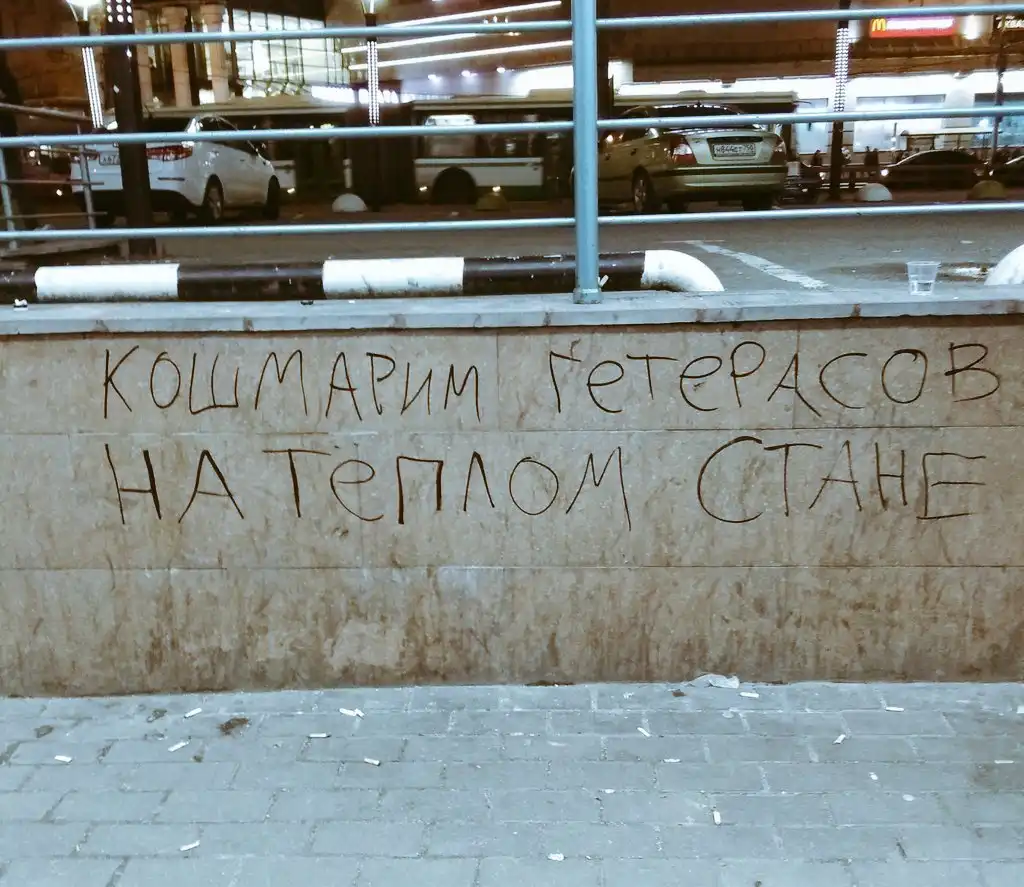 КОШМАРИМ ГЕТЕРАСОВ
НА ТЕПЛОМ СТАНЕ